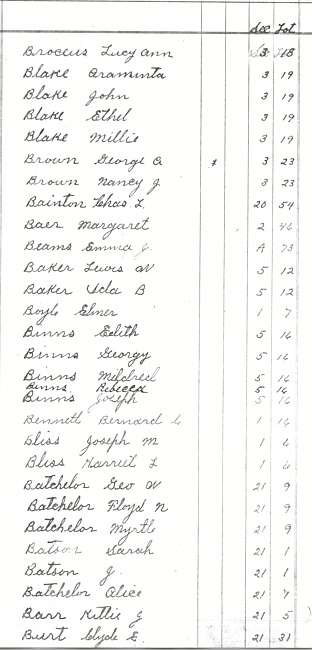 Sec Lot
Broccus Lucy Ann 3 18
Blake Araminta 3 19
Blake John 3 19
Blake Ethel 3 19
Blake Millie 3 19
Brown George A * 3 23
Brown Nancy J. 3 23
Bainton Chas L. 20 54
Baer Margaret 2 46
Beams Emma J. A 73
Baker Lewis W 5 12
Baker Ida B 5 12
Boyle Elmer 1 7
Binns Edith 5 16
Binns Georgy 5 16
Binns Mildred 5 16
Binns Rebecca 5 16
Binns Joseph 5 16
Bennett Bernard 1 16
Bliss Joseph M 1 6
Bliss Harriet L 1 6
Batchelor Geo W 21 9
Batchelor Floyd N 21 9
Batchelor Myrtle 21 9
Batson Sarah 21 1
Batson J. 21 1
Batchelor Alice 21 7
Barr Kittie J 21 5
Burt Clyde E. 21 31